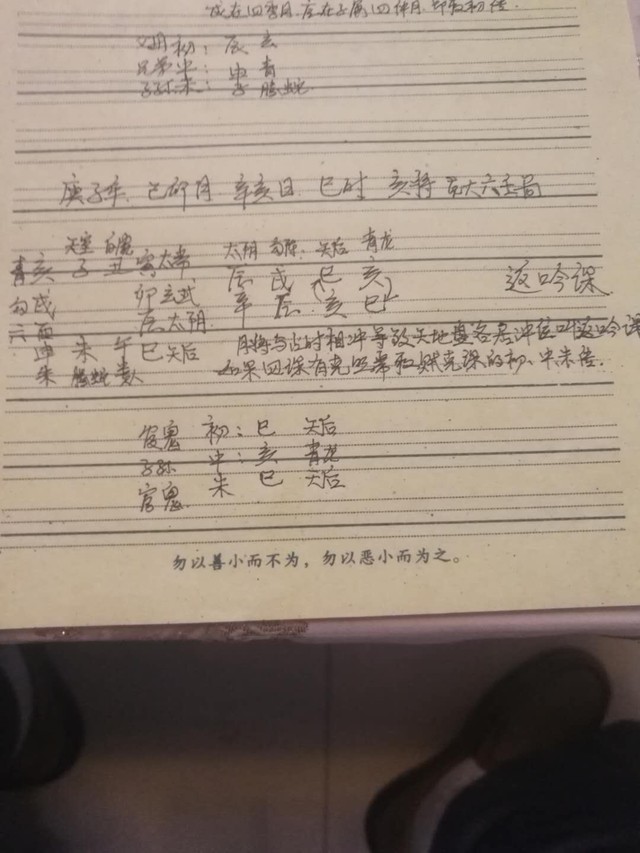 父母 初：辰 玄
兄弟 中：申 青
子孙 末：子 腾蛇
庚子年 己卯月 辛亥日 巳时 亥将 大六壬局
天空 白虎 太阴 勾陈 天后 青龙
青亥 子 丑 寅太常 辰 戌 巳 亥 返吟课
勾戌 卯玄武 辛 辰 亥 巳
六酉 辰太阴 月将与占时相冲导致天地盘各居冲位叫返吟课
朱申 未 午 巳天后 如果四课有克照常取贼克课的初、中末传.
腾蛇 贵人
官鬼 初：巳 天后
子孙 中：亥 青龙
官鬼 末 巳 天后
勿以善小而不为，勿以恶小而为之。